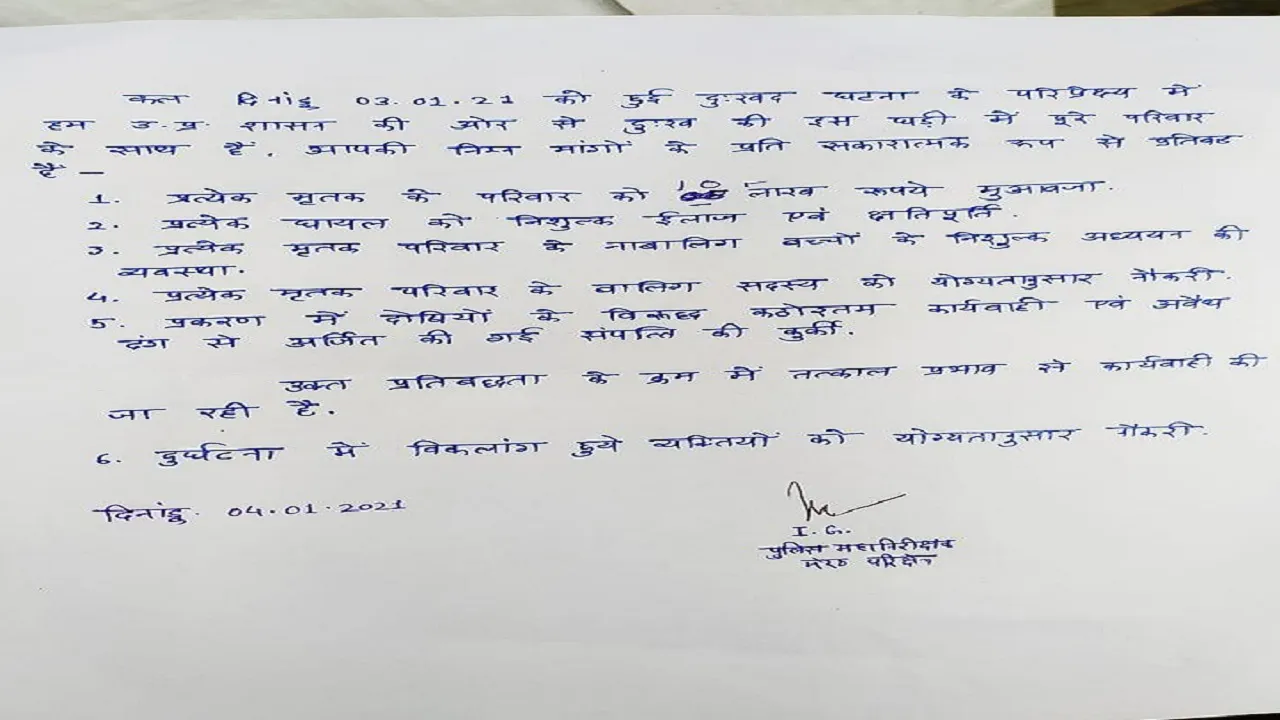 कल दिनांक 03.01.21 को हुई दुःखद घटना के परिप्रेक्ष्य में
हम उ.प्र. शासन की ओर से दुःख की इस घड़ी में पूरे परिवार
के साथ हैं. आपकी निम्न मांगों के प्रति सकारात्मक रूप से प्रतिबद्ध
हैं —
1. प्रत्येक मृतक के परिवार को 10 लाख रूपये मुआवजा.
2. प्रत्येक घायल को निशुल्क ईलाज एवं क्षतिपूर्ति.
3. प्रत्येक मृतक परिवार के नाबालिग बच्चों के निशुल्क अध्ययन की
व्यवस्था.
4. प्रत्येक मृतक परिवार के वालिग सदस्य को योग्यतानुसार नौकरी.
5. प्रकरण में दोषियों के विरूद्ध कठोरतम कार्यवाही एवं अवैध
ढंग से अर्जित की गई संपत्ति की कुर्की.
उक्त प्रतिबद्धता के क्रम में तत्काल प्रभाव से कार्यवाही की
जा रही है.
6. दुर्घटना में विकलांग हुये व्यक्तियों को योग्यतानुसार नौकरी.
दिनांक. 04.01.2021
I.G.
पुलिस महानिरीक्षक
मेरठ परिक्षेत्र